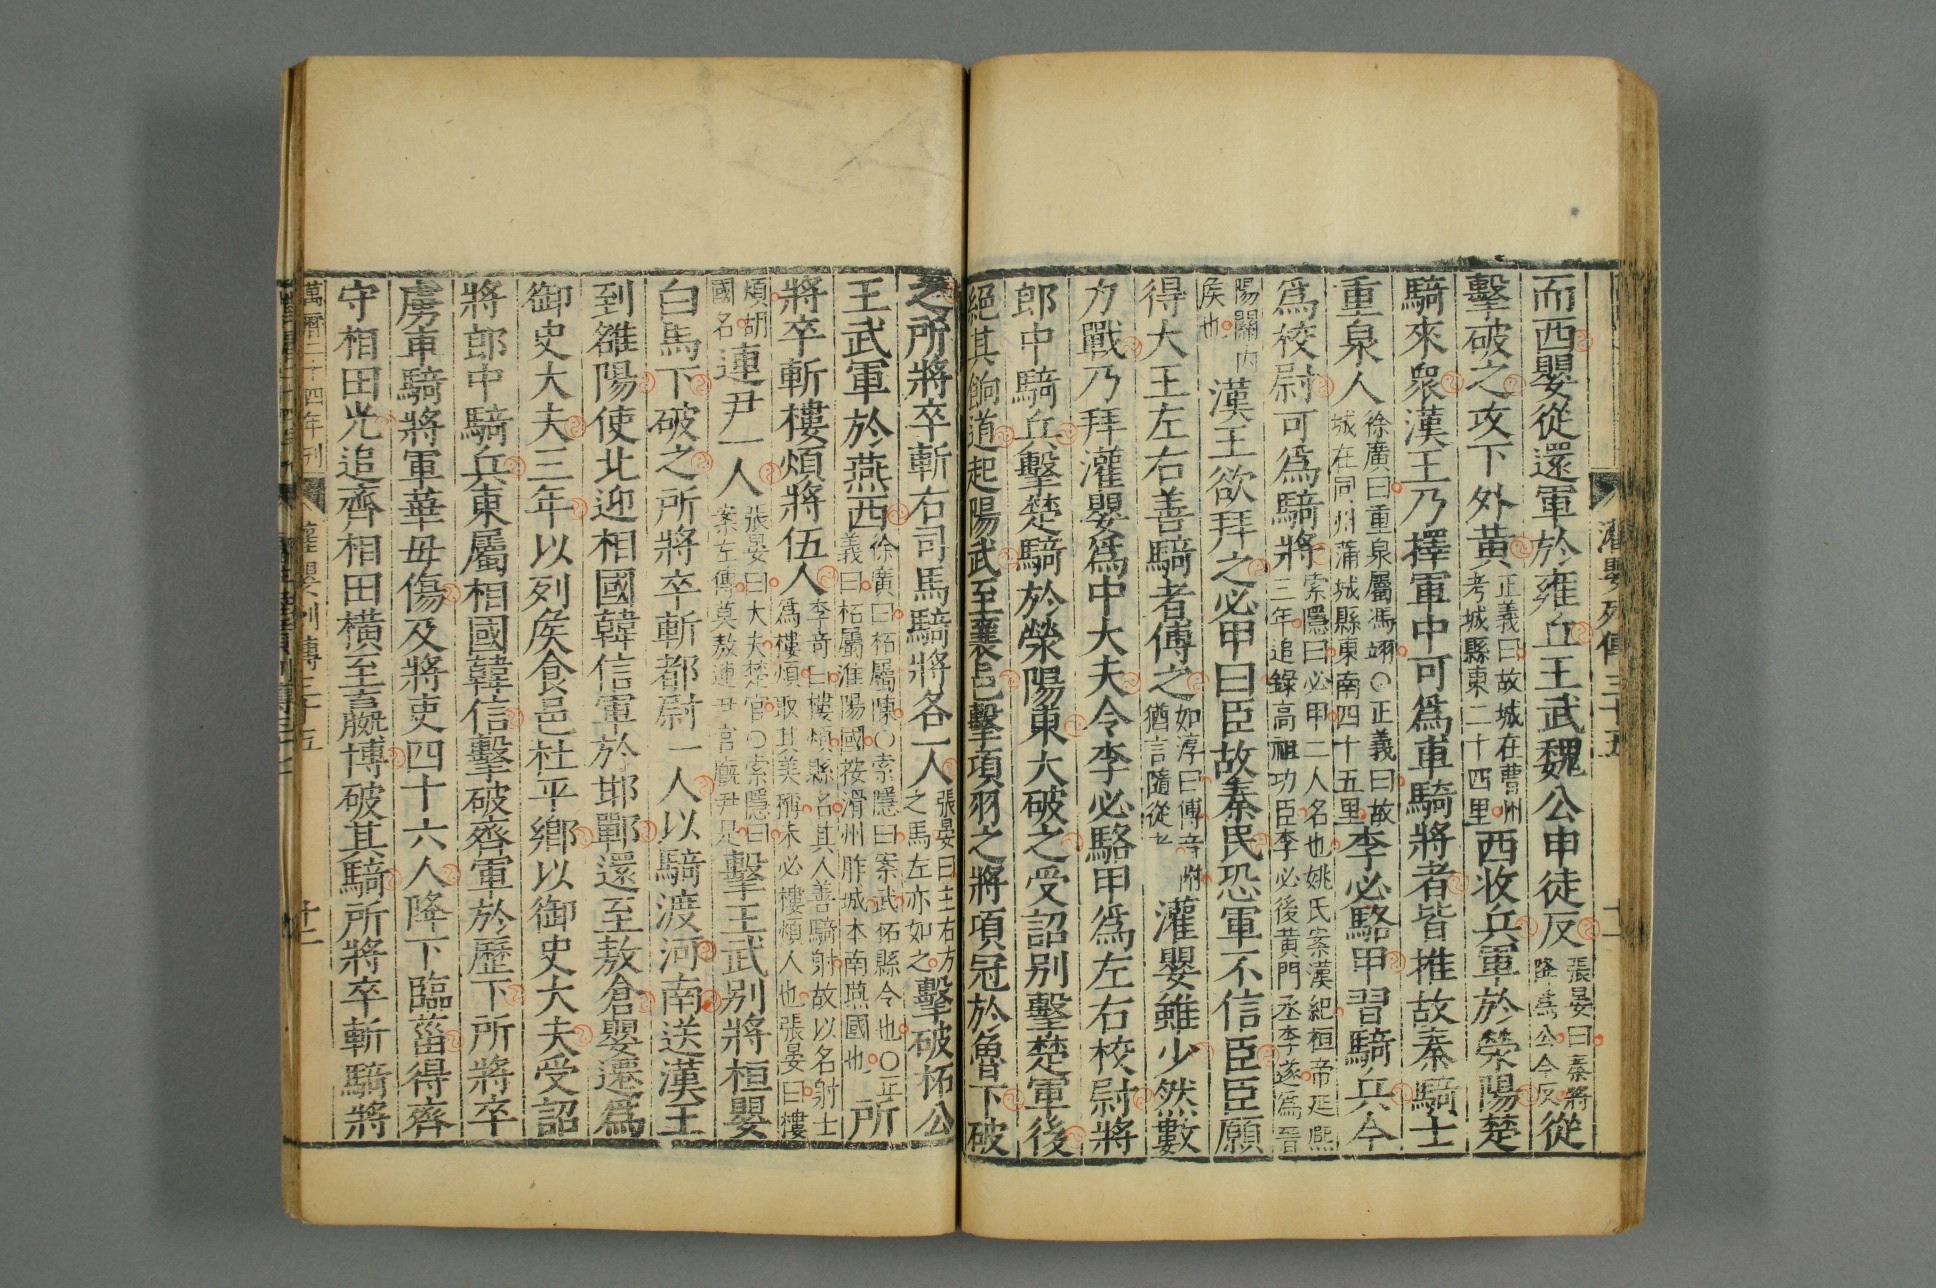 灌嬰列傳三十五
十一
而西嬰從還軍於雍丘王武魏公申徒反張晏曰秦將降爲公今反從
擊破之攻下外黃正義曰故城在曹州考城縣東二十四里西收兵軍於滎陽楚
騎來衆漢王乃擇軍中可爲車騎將者皆推故秦騎士
重泉人徐廣曰重泉屬馮翊○正義曰故城在同州蒲城縣東南四十五里李必駱甲習騎兵今
爲校尉可爲騎將索隱曰必甲二人名也姚氏案漢紀桓帝延熙三年追錄高祖功臣李必後黃門丞李遂爲晉
陽關內侯也漢王欲拜之必甲曰臣故秦民恐軍不信臣臣願
得大王左右善騎者傅之如淳曰傅音附猶言隨從者灌嬰雖少然數
力戰乃拜灌嬰爲中大夫令李必駱甲爲左右校尉將
郎中騎兵擊楚騎於滎陽東大破之受詔別擊楚軍後
絕其餉道起陽武至襄邑擊項羽之將項冠於魯下破
之所將卒斬右司馬騎將各一人張晏曰主右方之馬左亦如之擊破柘公
王武軍於燕西徐廣曰柘屬陳○索隱曰案武柘縣令也○正義曰柘屬淮陽國按滑州胙城本南燕國也所
將卒斬樓煩將伍人李奇曰樓煩縣名其人善騎射故以名射士爲樓煩取其美稱未必樓煩人也張晏曰樓
煩胡國名連尹一人張晏曰大夫楚官○索隱曰案左傳莫敖連尹宮廐尹是擊王武別將桓嬰
白馬下破之所將卒斬都尉一人以騎渡河南送漢王
到雒陽使北迎相國韓信軍於邯鄲還至敖倉嬰遷爲
御史大夫三年以列侯食邑杜平鄉以御史大夫受詔
將郎中騎兵東屬相國韓信擊破齊軍於歷下所將卒
虜車騎將軍華毋傷及將吏四十六人降下臨菑得齊
守相田光追齊相田橫至嬴博破其騎所將卒斬騎將
萬曆二十四年刊
灌嬰列傳三十五
十二